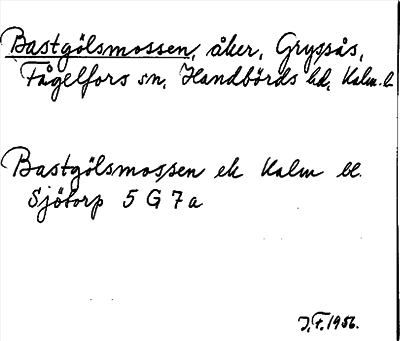 Bastgölsmossen, åker, Gryssås,
Fågelfors sn, Handbörds hd, Kalm. l.
Bastgölsmossen ek Kalm bl.
Sjötorp 5 G 7 a
J.F. 1956.